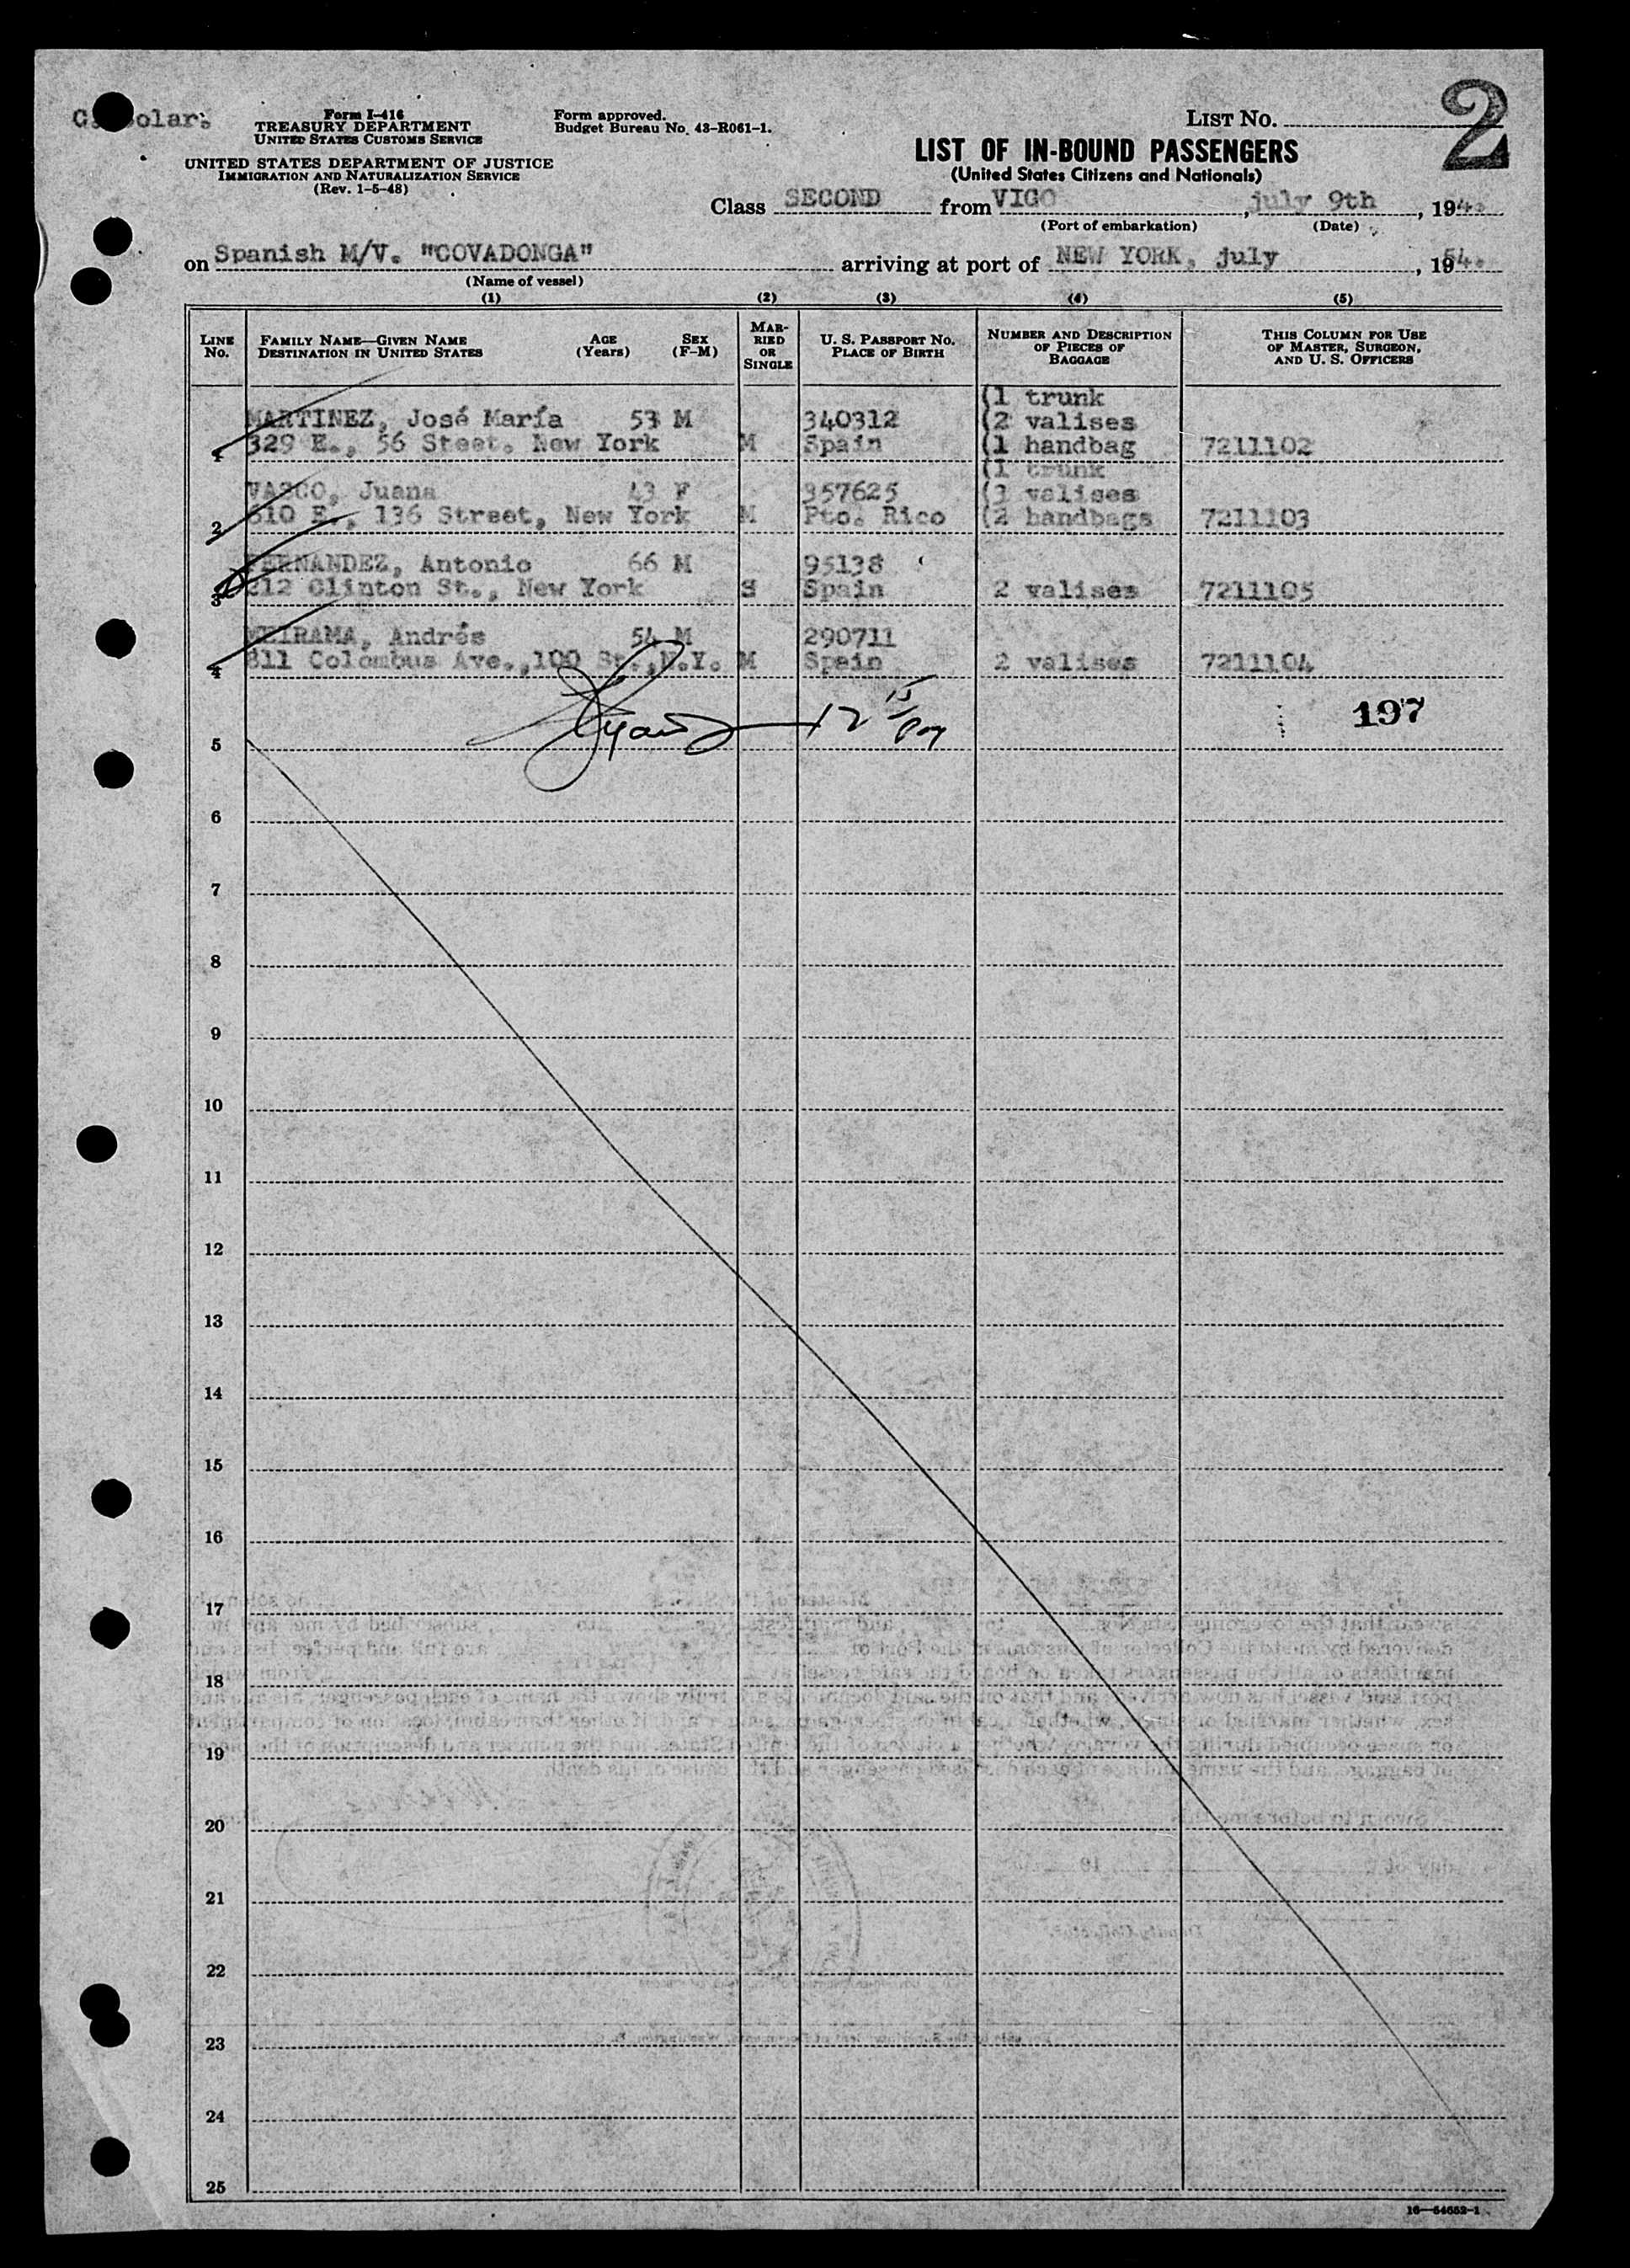 Form I-416
TREASURY DEPARTMENT
UNITED STATES CUSTOMS SERVICE
UNITED STATES DEPARTMENT OF JUSTICE
IMMIGRATION AND NATURALIZATION SERVICE
(Rev. 1-5-48)
Form approved.
Budget Bureau No. 43-R061-1.
LIST NO. 2
LIST OF IN-BOUND PASSENGERS
(United States Citizens and Nationals)
Class SECOND from VIGO, july 9th, 19
(Port of embarkation) (Date)
on Spanish M/V. "COVADONGA" arriving at port of NEW YORK, july, 1954.
(Name of vessel)
(1) (2) (3) (4) (5)
LINE NO. FAMILY NAME—GIVEN NAME DESTINATION IN UNITED STATES AGE (Years) SEX (F-M) MARRIED OR SINGLE U. S. PASSPORT NO. PLACE OF BIRTH NUMBER AND DESCRIPTION OF PIECES OF BAGGAGE THIS COLUMN FOR USE OF MASTER, SURGEON, AND U. S. OFFICERS
(1 trunk
MARTINEZ, José María 53 M 340312 (2 valises
1 329 E., 56 Steet. New York M Spain (1 handbag 7211102
(1 trunk
VASCO, Juana 43 F 357625 (3 valises
2 810 E., 136 Street, New York M Pto. Rico (2 handbags 7211103
FERNANDEZ, Antonio 66 M 95138
3 212 Clinton St., New York S Spain 2 valises 7211105
MEIRAMA, Andrés 54 M 290711
4 811 Colombus Ave.,100 St.,N.Y. M Spain 2 valises 7211104
197
5
6
7
8
9
10
11
12
13
14
15
16
17
18
19
20
21
22
23
24
25
16—54652-1